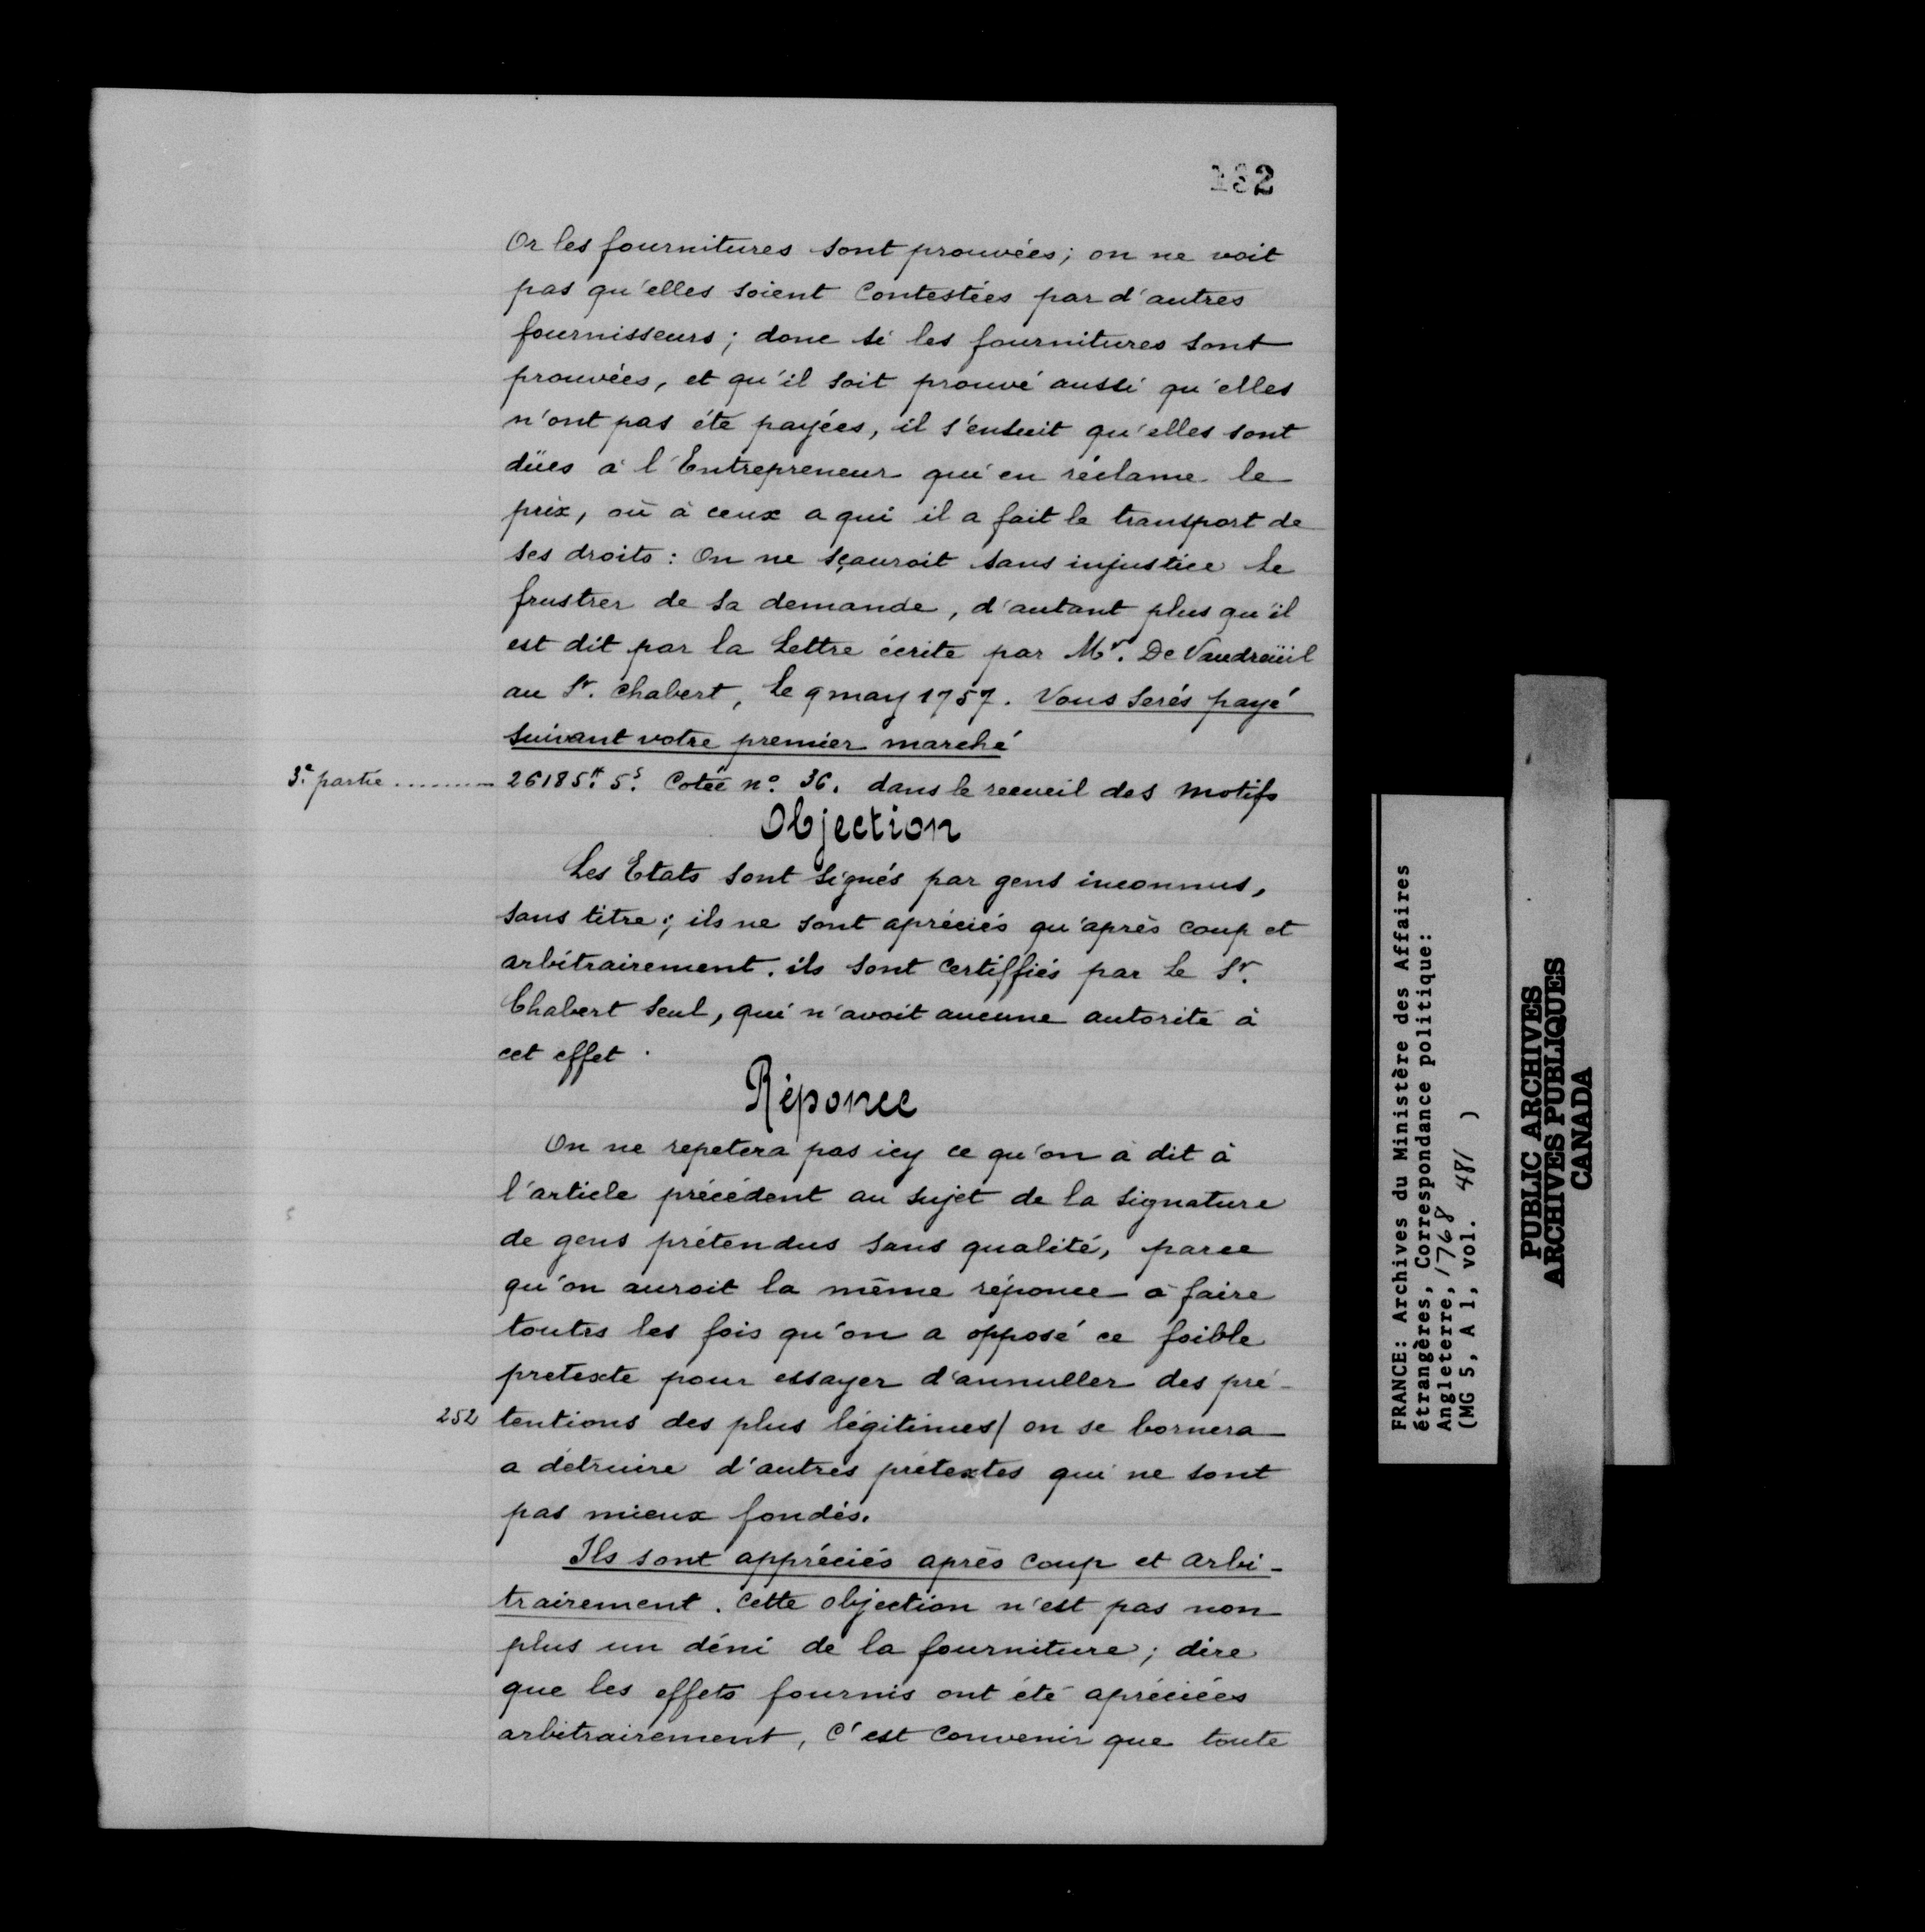 132
Or les fournitures sont prouvées; on ne voit
pas qu'elles soient Contestées par d'autres
fournisseurs; donc si les fournitures sont
prouvées, et qu'il soit prouvé aussi qu'elles
n'ont pas été payées, il s'ensuit qu'elles sont
düës à l'Entrepreneur qui en réclame le
prix, où à ceux a qui il a fait le transport de
ses droits: On ne sçauroit sans injustice le
frustrer de sa demande, d'autant plus qu'il
est dit par la Lettre écrite par Mr. De Vaudreüil
au Sr. Chabert, le 9 may 1757. Vous serés payé
suivant votre premier marché
3e. partie ......... 26185lt. 5s. Cotée no. 36. dans le recueil des motifs
Objection
Les Etats sont signés par gens inconnus,
sans titre; ils ne sont apréciés qu'après coup et
arbitrairement. ils sont Certiffiés par le Sr.
Chabert seul, qui n'avoit aucune autorité à
cet effet.
Réponce
On ne repetera pas icy ce qu'on à dit à
l'article précédent au sujet de la signature
de gens prétendus sans qualité, parce
qu'on auroit la même réponce à faire
toutes les fois qu'on a opposé ce foible
pretexte pour essayer d'annuller des pré-
252 tentions des plus légitimes/ on se bornera
a détruire d'autres prétextes qui ne sont
pas mieux fondés.
Ils sont appréciés après Coup et arbi-
trairement. Cette objection n'est pas non
plus un déni de la fourniture; dire
que les effets fournis ont été apréciées
arbitrairement, C'est Convenir que toute
FRANCE: Archives du Ministère des Affaires
étrangères, Correspondance politique:
Angleterre, 1768
(MG 5, A 1, vol. 481 )
PUBLIC ARCHIVES
ARCHIVES PUBLIQUES
CANADA